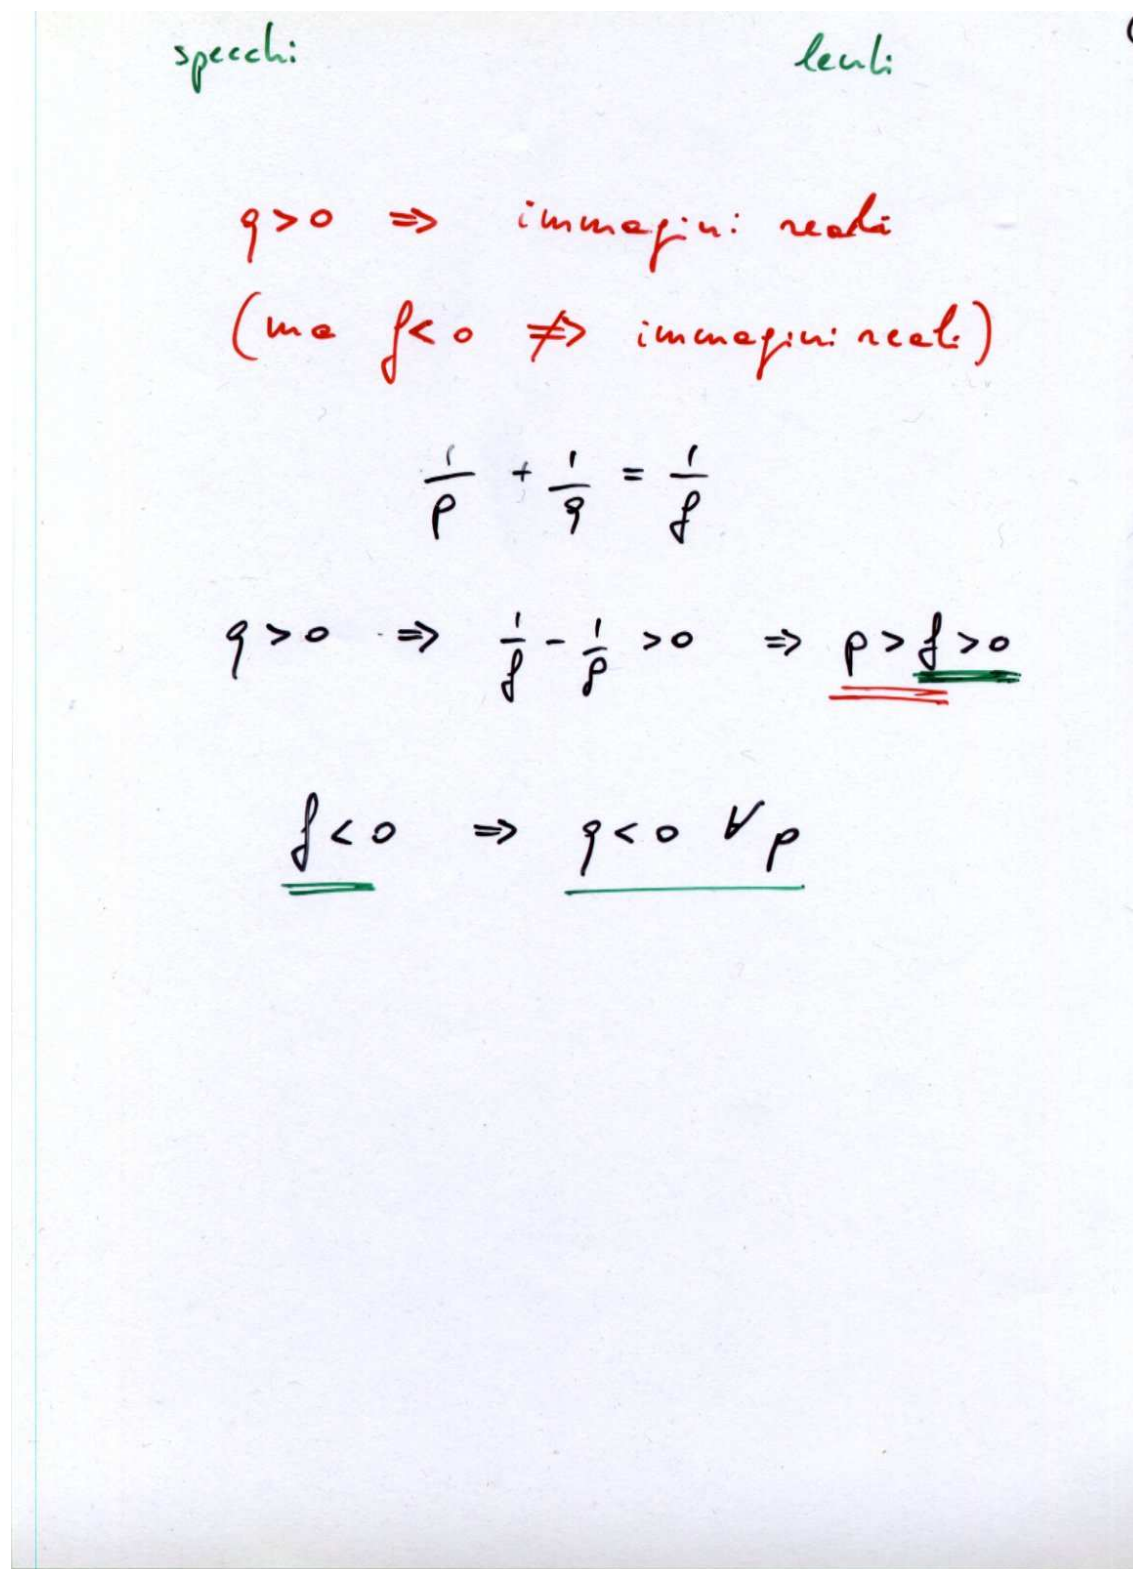 specchi lenti
q>0 ⇒ immagini reali
(ma f<0 ⇏ immagini reali)
1/p + 1/q = 1/f
q>0 ⇒ 1/f - 1/p >0 ⇒ p>f>0
f<0 ⇒ q<0 ∀p